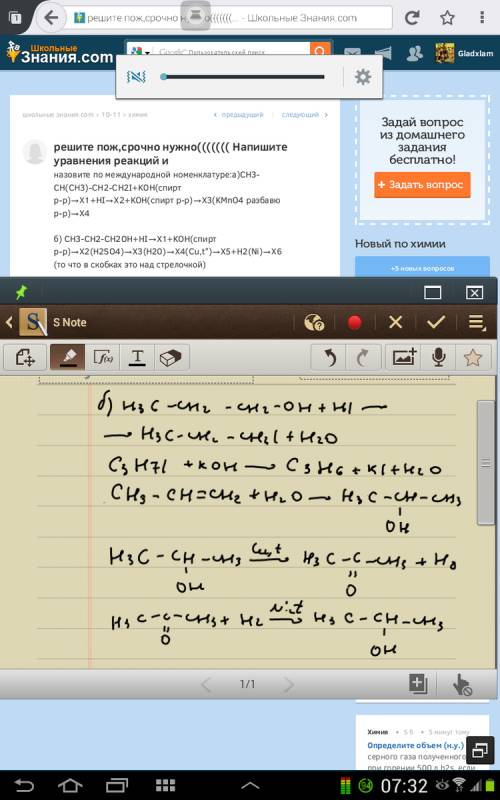 решите пож,срочно нужно(((((((... - Школьные Знания.com
Школьные
Знания.com
Google Пользовательский поиск
Gladxlam
школьные знания.com > 10-11 > химия
предыдущий
следующий
решите пож,срочно нужно((((((( Напишите
уравнения реакций и
назовите по международной номенклатуре:а)CH3-
CH(CH3)-CH2-CH2I+KOH(спирт
р-р)→X1+HI→X2+KOH(спирт р-р)→X3(KMnO4 разбавю
р-р)→X4
б) CH3-CH2-CH2OH+HI→X1+KOH(спирт
р-р)→X2(H2SO4)→X3(H2O)→X4(Cu,t°)→X5+H2(Ni)→X6
(то что в скобках это над стрелочкой)
Задай вопрос
из домашнего
задания
бесплатно!
+ Задать вопрос
Новый по химии
+5 новых вопросов
S Note
б) H3C-CH2 -CH2-OH + HI —
→ H3C-CH2-CH2I + H2O
C3H7I + KOH → C3H6 + KI + H2O
CH3-CH=CH2 + H2O → H3C-CH-CH3
OH
H3C-CH-CH3 Cu,t → H3C-C-CH3 + H2
OH
O
H3C-C-CH3 + H2 Ni,t → H3C-CH-CH3
O
OH
1/1
Химия
5 б
5 минут тому
Определите объем (н.у.)
серного газа полученного
при горении 500 л h2s, если
94
07:32